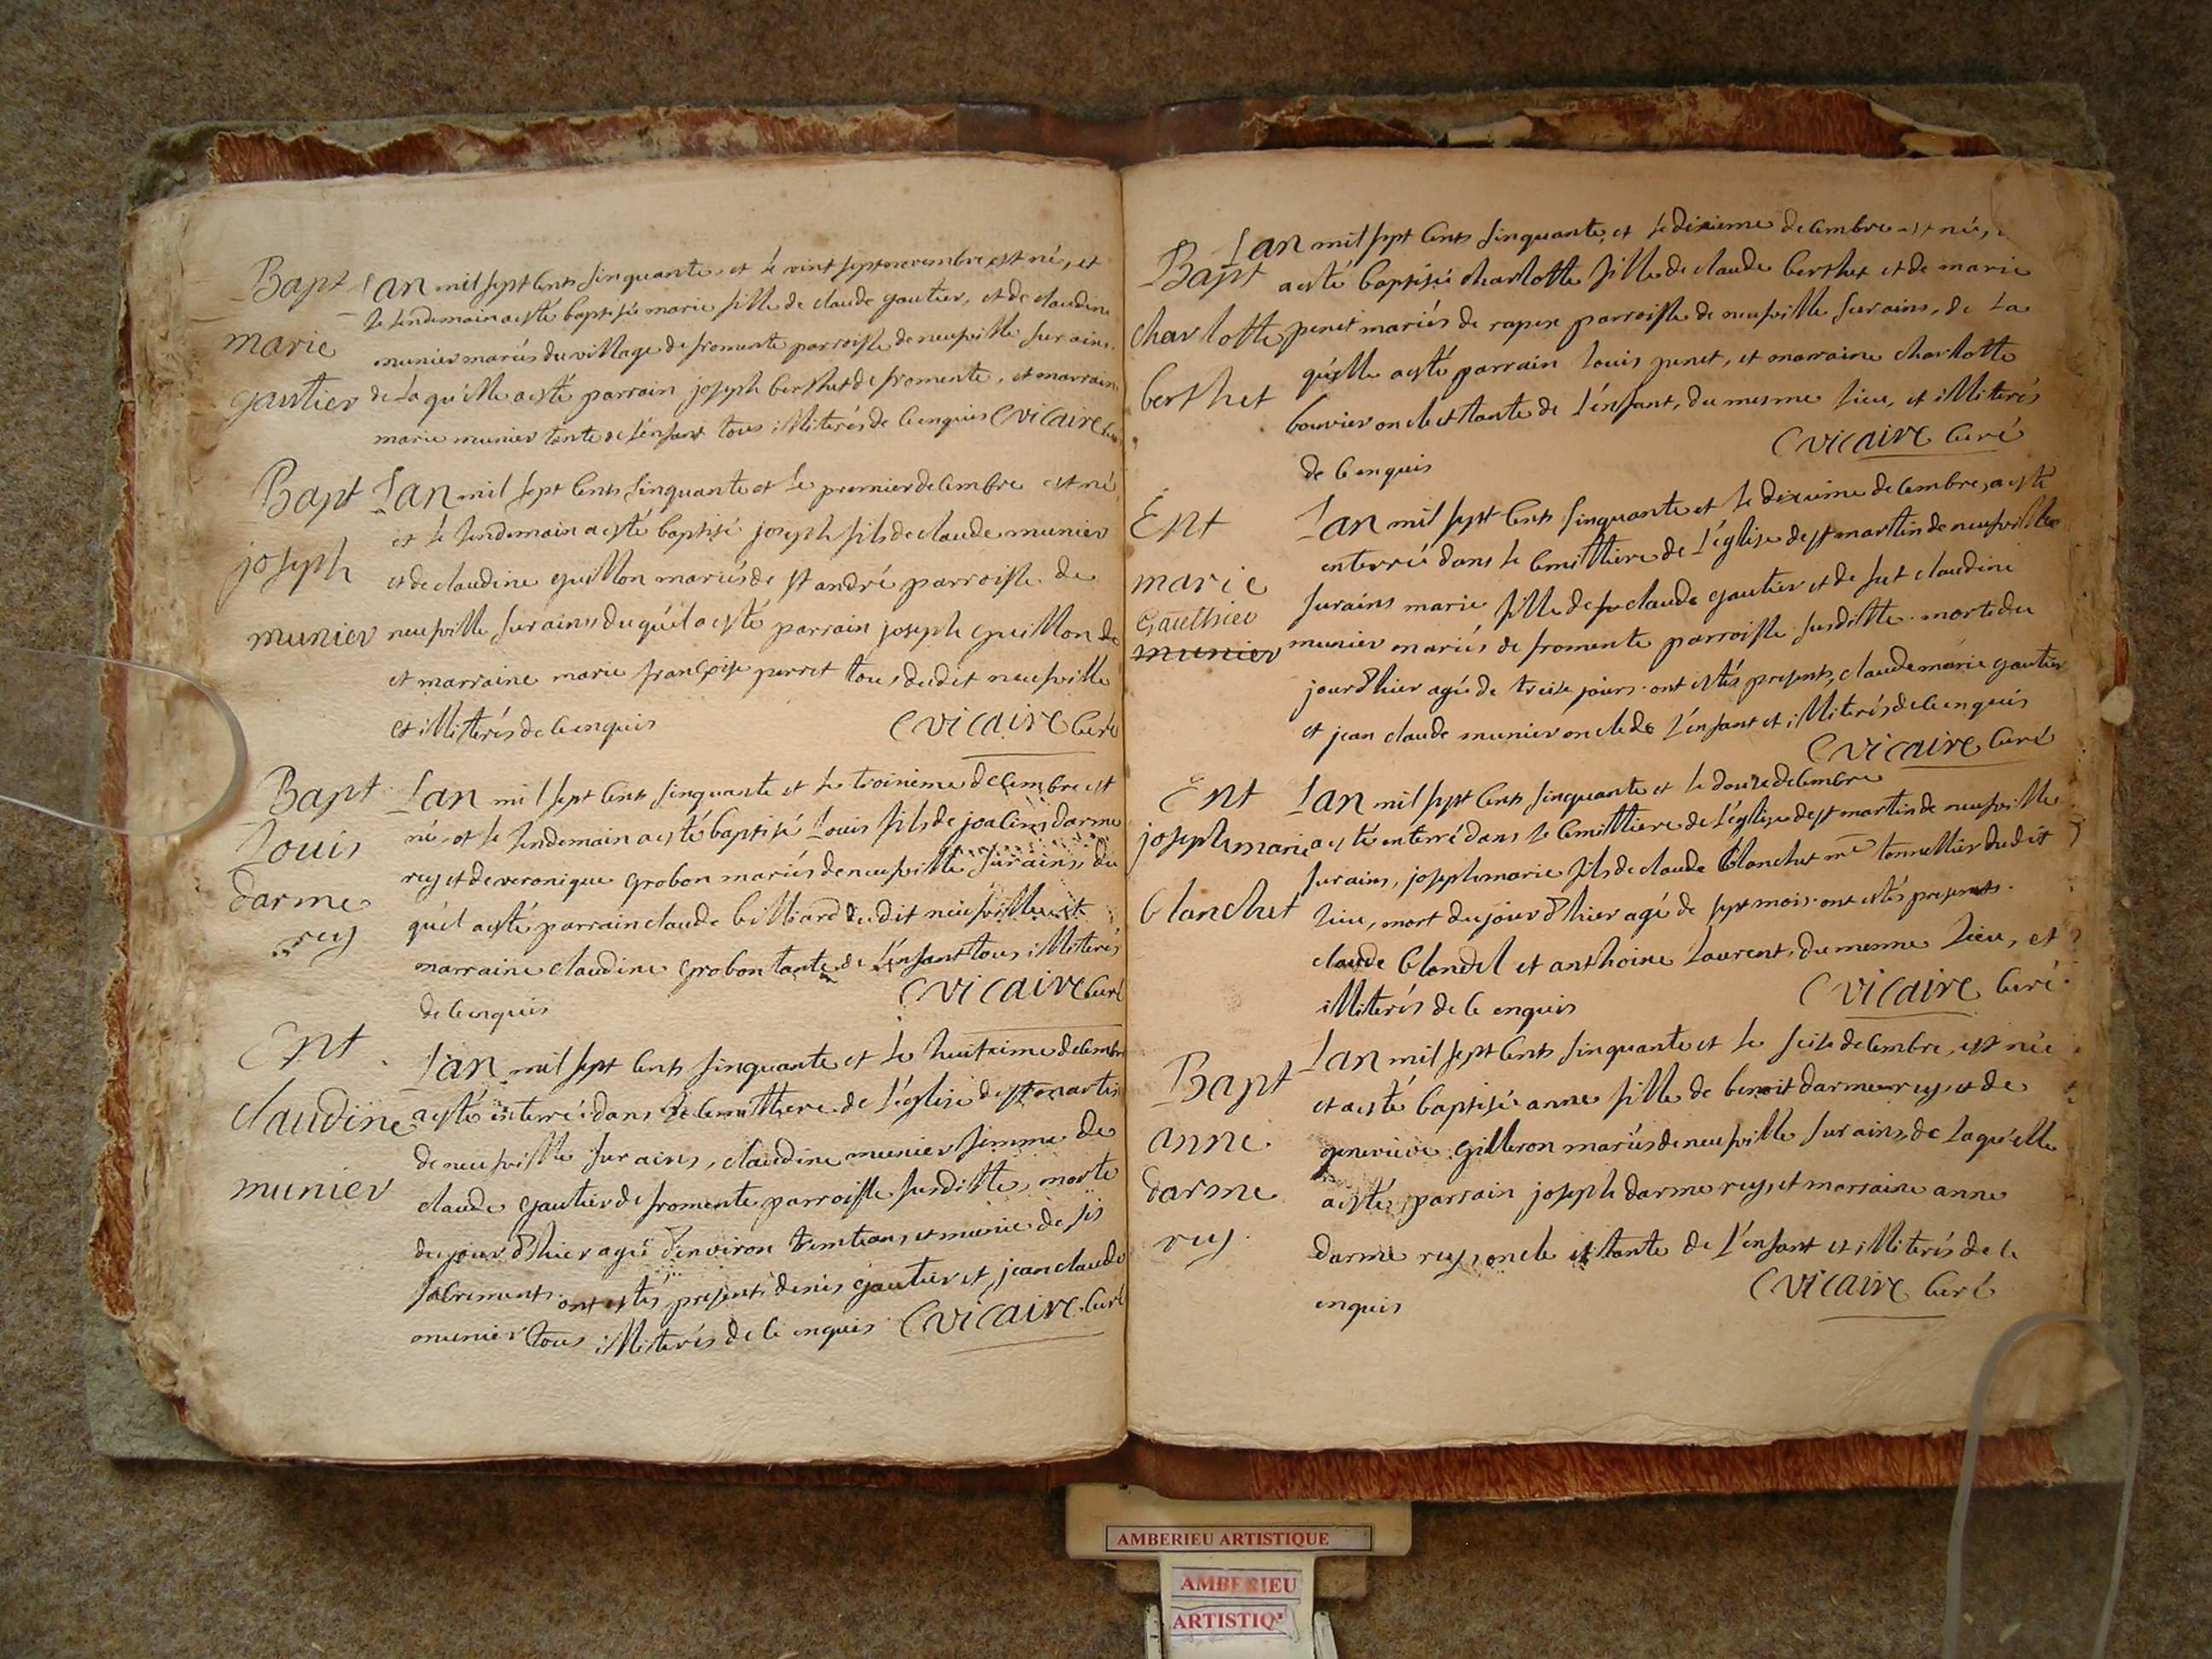 Bapt
marie
gautier
Lan mil sept Cents sinquante et le vint sept novembre est né, et
le lendemain a esté baptisée marie fille de claude gautier, et de claudine
munier mariés du village de fromente parroisse de neufville sur ains
de la qu'elle a esté parrain joseph berthet de fromente, et marraine
marie munier tante de l'enfant tous illiterés de ce enquis C vicaire
Bapt
joseph
munier
Lan mil sept Cents sinquante et le premier decembre est né
et le lendemain a esté baptisé joseph fils de claude munier
et de claudine guillon mariés de st andré parroisse de
neufville sur ains du qu'el a esté parrain joseph guillon de
et marraine marie françoise perret tous dudit neufville
et illiterés de ce enquis C vicaire Curé
Bapt
Louis
darme
rey
Lan mil sept Cents sinquante et le troisieme decembre est
né et le lendemain a esté baptisé Louis fils de joachim darme
rey et de veronique grobon mariés de neufville sur ains, du
qu'el a esté parrain claude billiard dudit neufville et
marraine claudine grobon tante de l'enfant tous illiterés
de ce enquis C vicaire Curé
Ent
claudine
munier
Lan mil sept Cents sinquante et le huitieme decembre
a esté enterrée dans le Cemittiere de l'église de st martin
de neufville sur ains, claudine munier femme de
claude gautier de fromente parroisse susditte, morte
du jour d'hier agée d'environ trente ans, et munie de ses
sacrements ont estés presents denis gautier et jean claude
munier tous illiterés de ce enquis C vicaire Curé
Bapt
charlotte
berthet
Lan mil sept Cents sinquante, et le dixieme decembre est née,
a esté baptisée charlotte fille de claude berthet et de marie
penet mariés de rapex parroisse de neufville sur ains, de la
qu'elle a esté parrain Louis penet, et marraine charlotte
bouvier oncle et tante de l'enfant, du mesme lieu, et illiterés
de ce enquis C vicaire Curé
Ent
marie
Gauthier
munier
Lan mil sept Cents sinquante et le dixieme decembre, a esté
enterrée dans le Cemittiere de l'église de st martin de neufville
sur ains marie fille de claude gautier et de fut claudine
munier mariés de fromente parroisse susditte morte du
jour d'hier agée de treize jours ont estés presents, claude marie gautier
et jean claude munier oncle de l'enfant et illiterés de ce enquis
C vicaire Curé
Ent
joseph marie
blanchet
Lan mil sept Cents sinquante et le douze decembre
a esté enterré dans le Cemittiere de l'église de st martin de neufville
sur ains, joseph marie fils de claude blanchet me tonnellier dudit
lieu, mort du jour d'hier agé de sept mois ont estés presents
claude blondel et anthoine Laurent du mesme lieu, et
illiterés de ce enquis C vicaire Curé
Bapt
anne
darme
rey
Lan mil sept Cents sinquante et le seize decembre, est née
et a esté baptisée anne fille de benoit darme rey, et de
genevieve gilleron mariés de neufville sur ains, de laqu'elle
a esté parrain joseph darme rey, et marraine anne
darme rey, oncle et tante de l'enfant et illiterés de ce
enquis C vicaire Curé
AMBERIEU ARTISTIQUE
AMBERIEU
ARTISTIQ